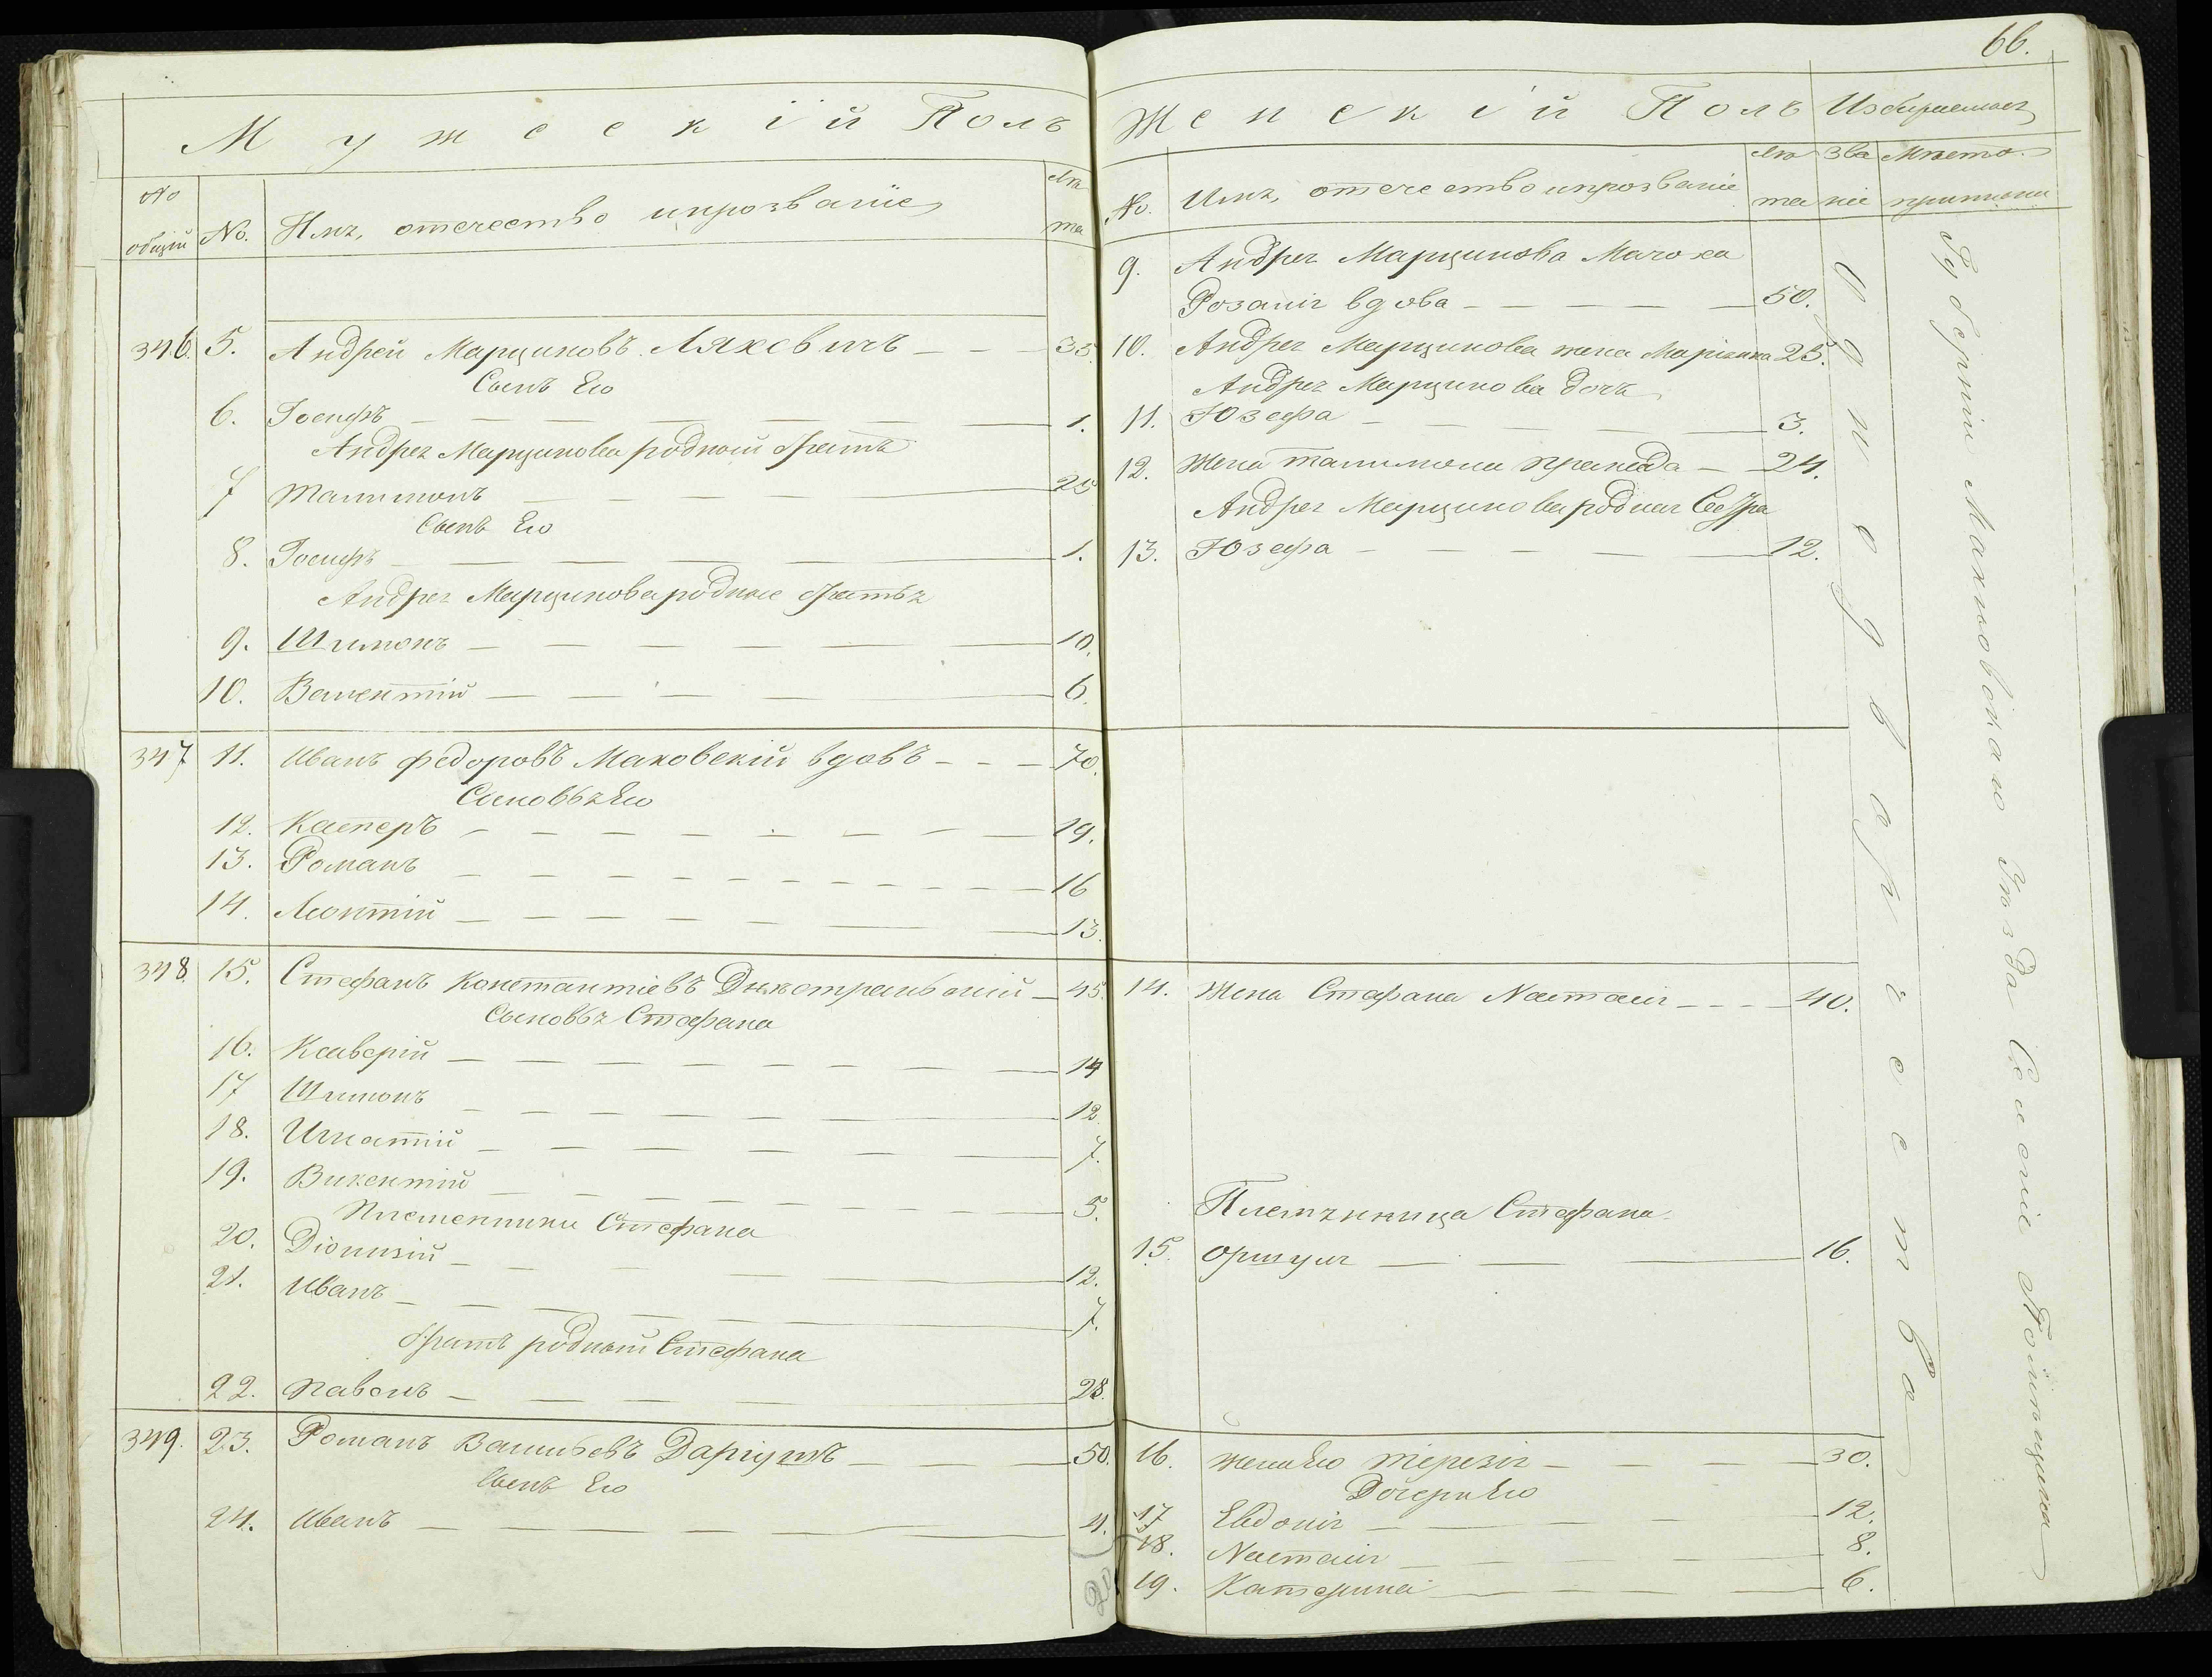 66.
Мужескій Полъ
No общій
No.
Имя, отечество и прозваніе
Лѣта
346. 5. Андрей Марциновъ Ляхевичъ 35.
Сынъ Его
6. Іосифъ 1.
Андрея Марцинова родный братъ
7 25
Сынъ Его
8. Іосифъ 1.
Андрея Марцинова родные братья
9. Шимонъ 10.
10. Валентій 6.
347 11. Иванъ Федоровъ Маковскій вдовъ 70.
Сыновья Его
12. Касперъ 19.
13. Романъ 16
14. Леонтій 13.
348. 15. Стефанъ Константіевъ 45.
Сыновья Стефана
16. Ксаверій 14
17 Шимонъ 12.
18. Игнатій 7.
19. Викентій 5.
Племенники Стефана
20. Діонизій 12.
21. Иванъ 7.
братъ родный Стефана
22. Павелъ 28.
349. 23. Романъ Васильевъ 50.
Сынъ Его
24. Иванъ 4.
Женскій Полъ
Избираемое
No.
Имя, отечество и прозваніе
Лѣта
Званіе
Мѣсто
9. Андрея Марцинова Мачоха
Розалія вдова 50.
10. Андрея Марцинова жена Маріанна 25.
Андрея Марцинова дочь
11. Юзефа 3.
12. Жена 24.
Андрея Марцинова родная Сестра
13. Юзефа 12.
14. Жена Стефана Настасія 40.
Племянница Стефана
15. Оршуля 16.
16. Жена Его Терезія 30.
Дочери Его
17 Евдокія 12.
18. Настасія 8.
19. Катерина 6.
Однодворчества
Губерніи Махновскаго Уѣзда Селеніе